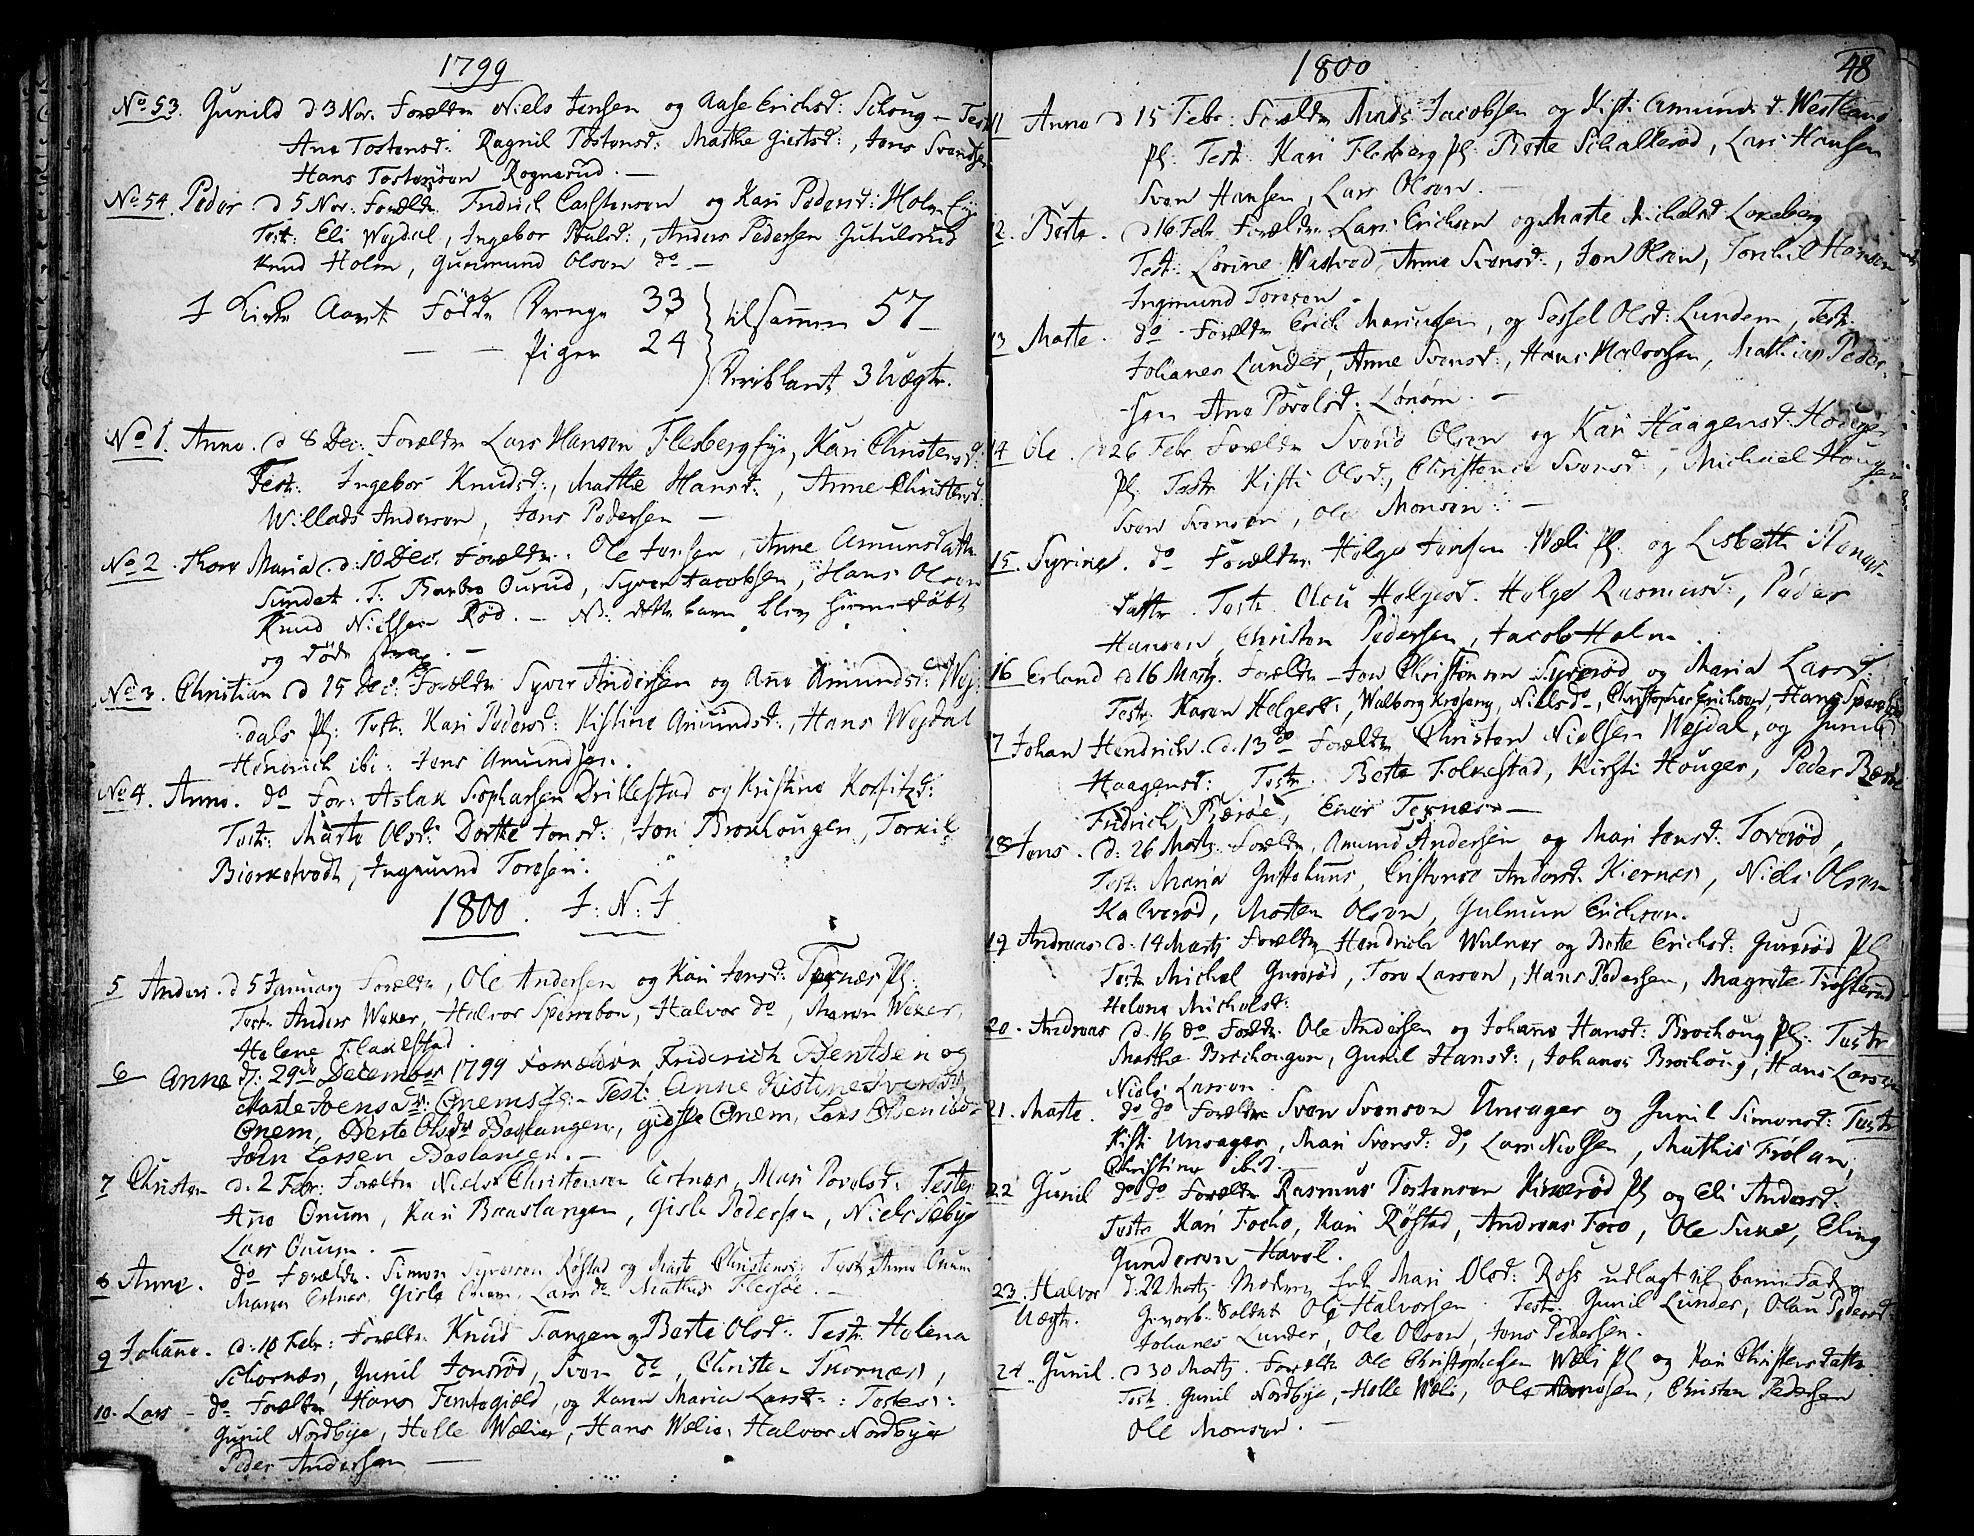 1799
No 53. Gunild d 3 Nov. Forældre Niels Jensen og Aase Erichsd: Schoug - Test
Ane Tostensd: Ragnil Tostensd: Marthe Giertsd:, Jens Svendsen
Hans Tostensen Rognerud. -
No 54. Peder. d 5 Nov. Forældre Fridrich Carlstensen og Kari Pedersd: Holm Eje
Test: Eli Wejdal, Ingebor Poulsd:, Anders Pedersen Gutulsrud
Knud Holm, Gunmund Olsen do -
I Kirke Aaret Fødde Drenge 33
- - Pigen 24
tilsammen 57 -
Deriblant 3 Uægte.
No 1. Anne. d 8 Dec. Forældre Lars Hansen Flesberg Eje, Kari Christensd:
Test: Ingebor Knudsd:, Marthe Hansd:, Anne Christensd:
Willads Andersen, Jens Pedersen -
No 2. Thore Maria. d: 10 Dec. Forældre. Ole Jensen, Anne Amunsdatter
Sundet. T: Barbro Ourud, Syver Jacobsen, Hans Olsen
Knud Nielsen Rød. - NB: dette barn blev hiemmedøbt
og døde strax. -
No 3. Christian d 15 Dec: Forældre Syver Andersen og Ane Amundsd: Wej:
dals Pl: Test: Kari Pedersd: Kistine Amundsd:, Hans Wejdal
Hendrich ibi: Jens Amundsen.
No 4. Anne. do For: Aslak Sophasen Drillestad og Kristine Korfitzd:
Test: Marte Olsd: Dorthe Jensd:, Jon Broxhougen, Torkil
Biorketvedt, Ingmund Toresen:
1800. I: N: I
5 Anders. d 5 January Forældre, Ole Andersen og Kari Jensd: Ternæs Pl:
Test: Anders Weker, Halvor Sperrebon, Halvor do, Maren Weker,
Helene Flakestad.
6 Anne d: 29de December 1799 Forældre Friderich Bentsen og
Marte Jens Dtr: Onems Eje - Test: Anne Kistine Iversdtr
Onem, Berte Olsdtr Baslangen, Gidske Onem, Lars Olsen
Joen Larsen Baslangen. -
7 Christen d. 2 Febr: Forældre Niels Christensen Ertnes, Mari Povelsd: Testes
Ane Onum, Kari Baaslangen, Gisle Pedersen, Niels Sebye
Lars Onum. -
8 Anne. do Forældre. Simon Syversen Røstad og Marte Christensd: Test: Anne Onum
Maren Ertnes, Gisle Onum, Lars do Mathis Flessøe. -
9 Johanne. d. 10 Febr: Forældre Knud Tangen og Berte Olsd: Test: Helena
Schornæs, Gunil Jonsrød, Sven do, Christen Skornæs,
10. Lars - do Forældre Hans Femtegield, og Karen Maria Larsd: : Testes:
Gunil Nordbye, Helle Wæliei, Hans Wælie, Halvor Nordbye
Peder Andersen -
1800
48
11 Anne d 15 Febr: Forældre Mads Jacobsen og Kisti Amunds d. Westbane
Pl. Test: Kari Flesberg Pl. Berte Schallerød, Lars Hansen
Sven Hansen, Lars Olsen. -
12. Berte. d 16 Febr. Forældre Lars Erichsen og Marte Michelsd Lokeberg
Test: Lorine Wastved, Anne Svensd:, Jon Olsen, Torchil Hansen
Ingmund Toresen. -
13 Marte. do Forældre Erich Mariussen, og Sessel Olsd: Lundem, Test:
Johanes Lunder, Anne Svensd:, Hans Halvorsen, Mathias Peder-
-sen Ane Povelsd: Lønøm. -
14 Ole. d 26 Febr. Forældre Svend Olsen og Kari Haagensd: Houger
Pl. Test: Kisti Olsd:, Christence Svensd:, Michael Hougen
Sven Svensen, Ole Monsen: -
15. Syrine. do Forældre Helge Jensen Wæli Pl. og Lisbeth Steners-
datter. Test: Oleu Helgesd. Helge Rasmusd:, Peder
Hansen, Christen Pedersen, Jacob Holm.
16 Erland d 16 Marty. Forældre - Jon Christensen Syverød og Maria Larsd:
Test: Karen Helgesd:, Walborg Krogeng, Niels do -, Christopher Erichsen, Hans Sperrebon
17 Johan Hendrich. d. 13 do Forældre Christen Nielsen Wejdal, og Gunild
Haagensd: Test: Berte Folkestad, Kirsti Houger, Peder Bærøe
Fridrich Bærøe, Ener Ternæs -
18 Jens. d: 26 Marty. Forældre, Amund Andersen og Mari Jensd: Toverød,
Test: Maria Guttekuns, Cristense Andersd. Kiernæs, Niels Olsen
Kalverød, Morten Olsen, Gulmun Erichsen.
19 Andreas d. 14 Marty Forældre Hendrich Wulner og Berte Erichsd: Gurerød Pl
Test: Michel Gurerød, Tore Larsen, Hans Pedersen, Magrete Trøsterud
Helene Michelsd:
20. Andreas d. 16 do Forældre Ole Andersen og Johanne Hansd: Brochoug Pl: Test:
Marthe Brochougen, Gunil Hansd:, Johanes Brochoug, Hans Larsen
Niels Larsen.
21. Marte. do do Forældre Sven Svensen Unsager og Gunil Simonsd: Test
Kisti Unsager, Mari Svensd: do, Lars Nielsen, Mathis Frølan,
Christine ibid.
22 Gunil do do Forældre Rasmus Tostensen Kisærød Pl og Eli Andersd:
Test Kari Focho, Kari Røstad, Andreas Foco, Ole Suxe, Eling
Gundersen Havsl.
23. Halvor d. 22 Marty Moderen Enke Mari Olsd: Ross udlagt til barne Fader
Uægte. Gevorb: Soldat Ole Halvorsen. Test: Gunil Lunder, Olau Pedersd
Johanes Lunder, Ole Olsen, Jens Pedersen.
24. Gunil. d 30 Marty. Forældre Ole Christophersen Wæli Pl og Kari Christens datter
Test. Gunil Nordbye, Helle Wæli, Ole Hansen, Christen Pedersen
Ole Monsen. -